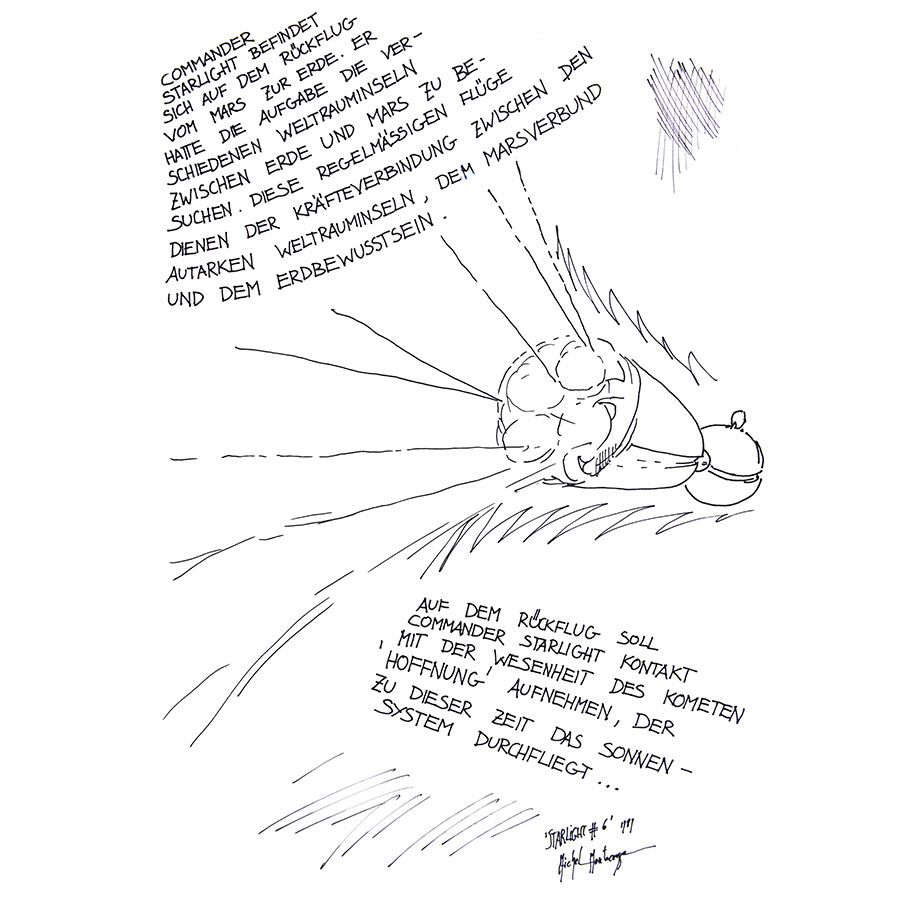 COMMANDER
STARLIGHT BEFINDET
SICH AUF DEM RÜCKFLUG
VOM MARS ZUR ERDE. ER
HATTE DIE AUFGABE DIE VER-
SCHIEDENEN WELTRAUMINSELN
ZWISCHEN ERDE UND MARS ZU BE-
SUCHEN. DIESE REGELMÄSSIGEN FLÜGE
DIENEN DER KRÄFTEVERBINDUNG ZWISCHEN DEN
AUTARKEN WELTRAUMINSELN, DEM MARSVERBUND
UND DEM ERDBEWUSSTSEIN.
AUF DEM RÜCKFLUG SOLL
COMMANDER STARLIGHT KONTAKT
MIT DER WESENHEIT DES KOMETEN
'HOFFNUNG' AUFNEHMEN, DER
ZU DIESER ZEIT DAS SONNEN-
SYSTEM DURCHFLIEGT...
'STARLIGHT # 6'
Michel